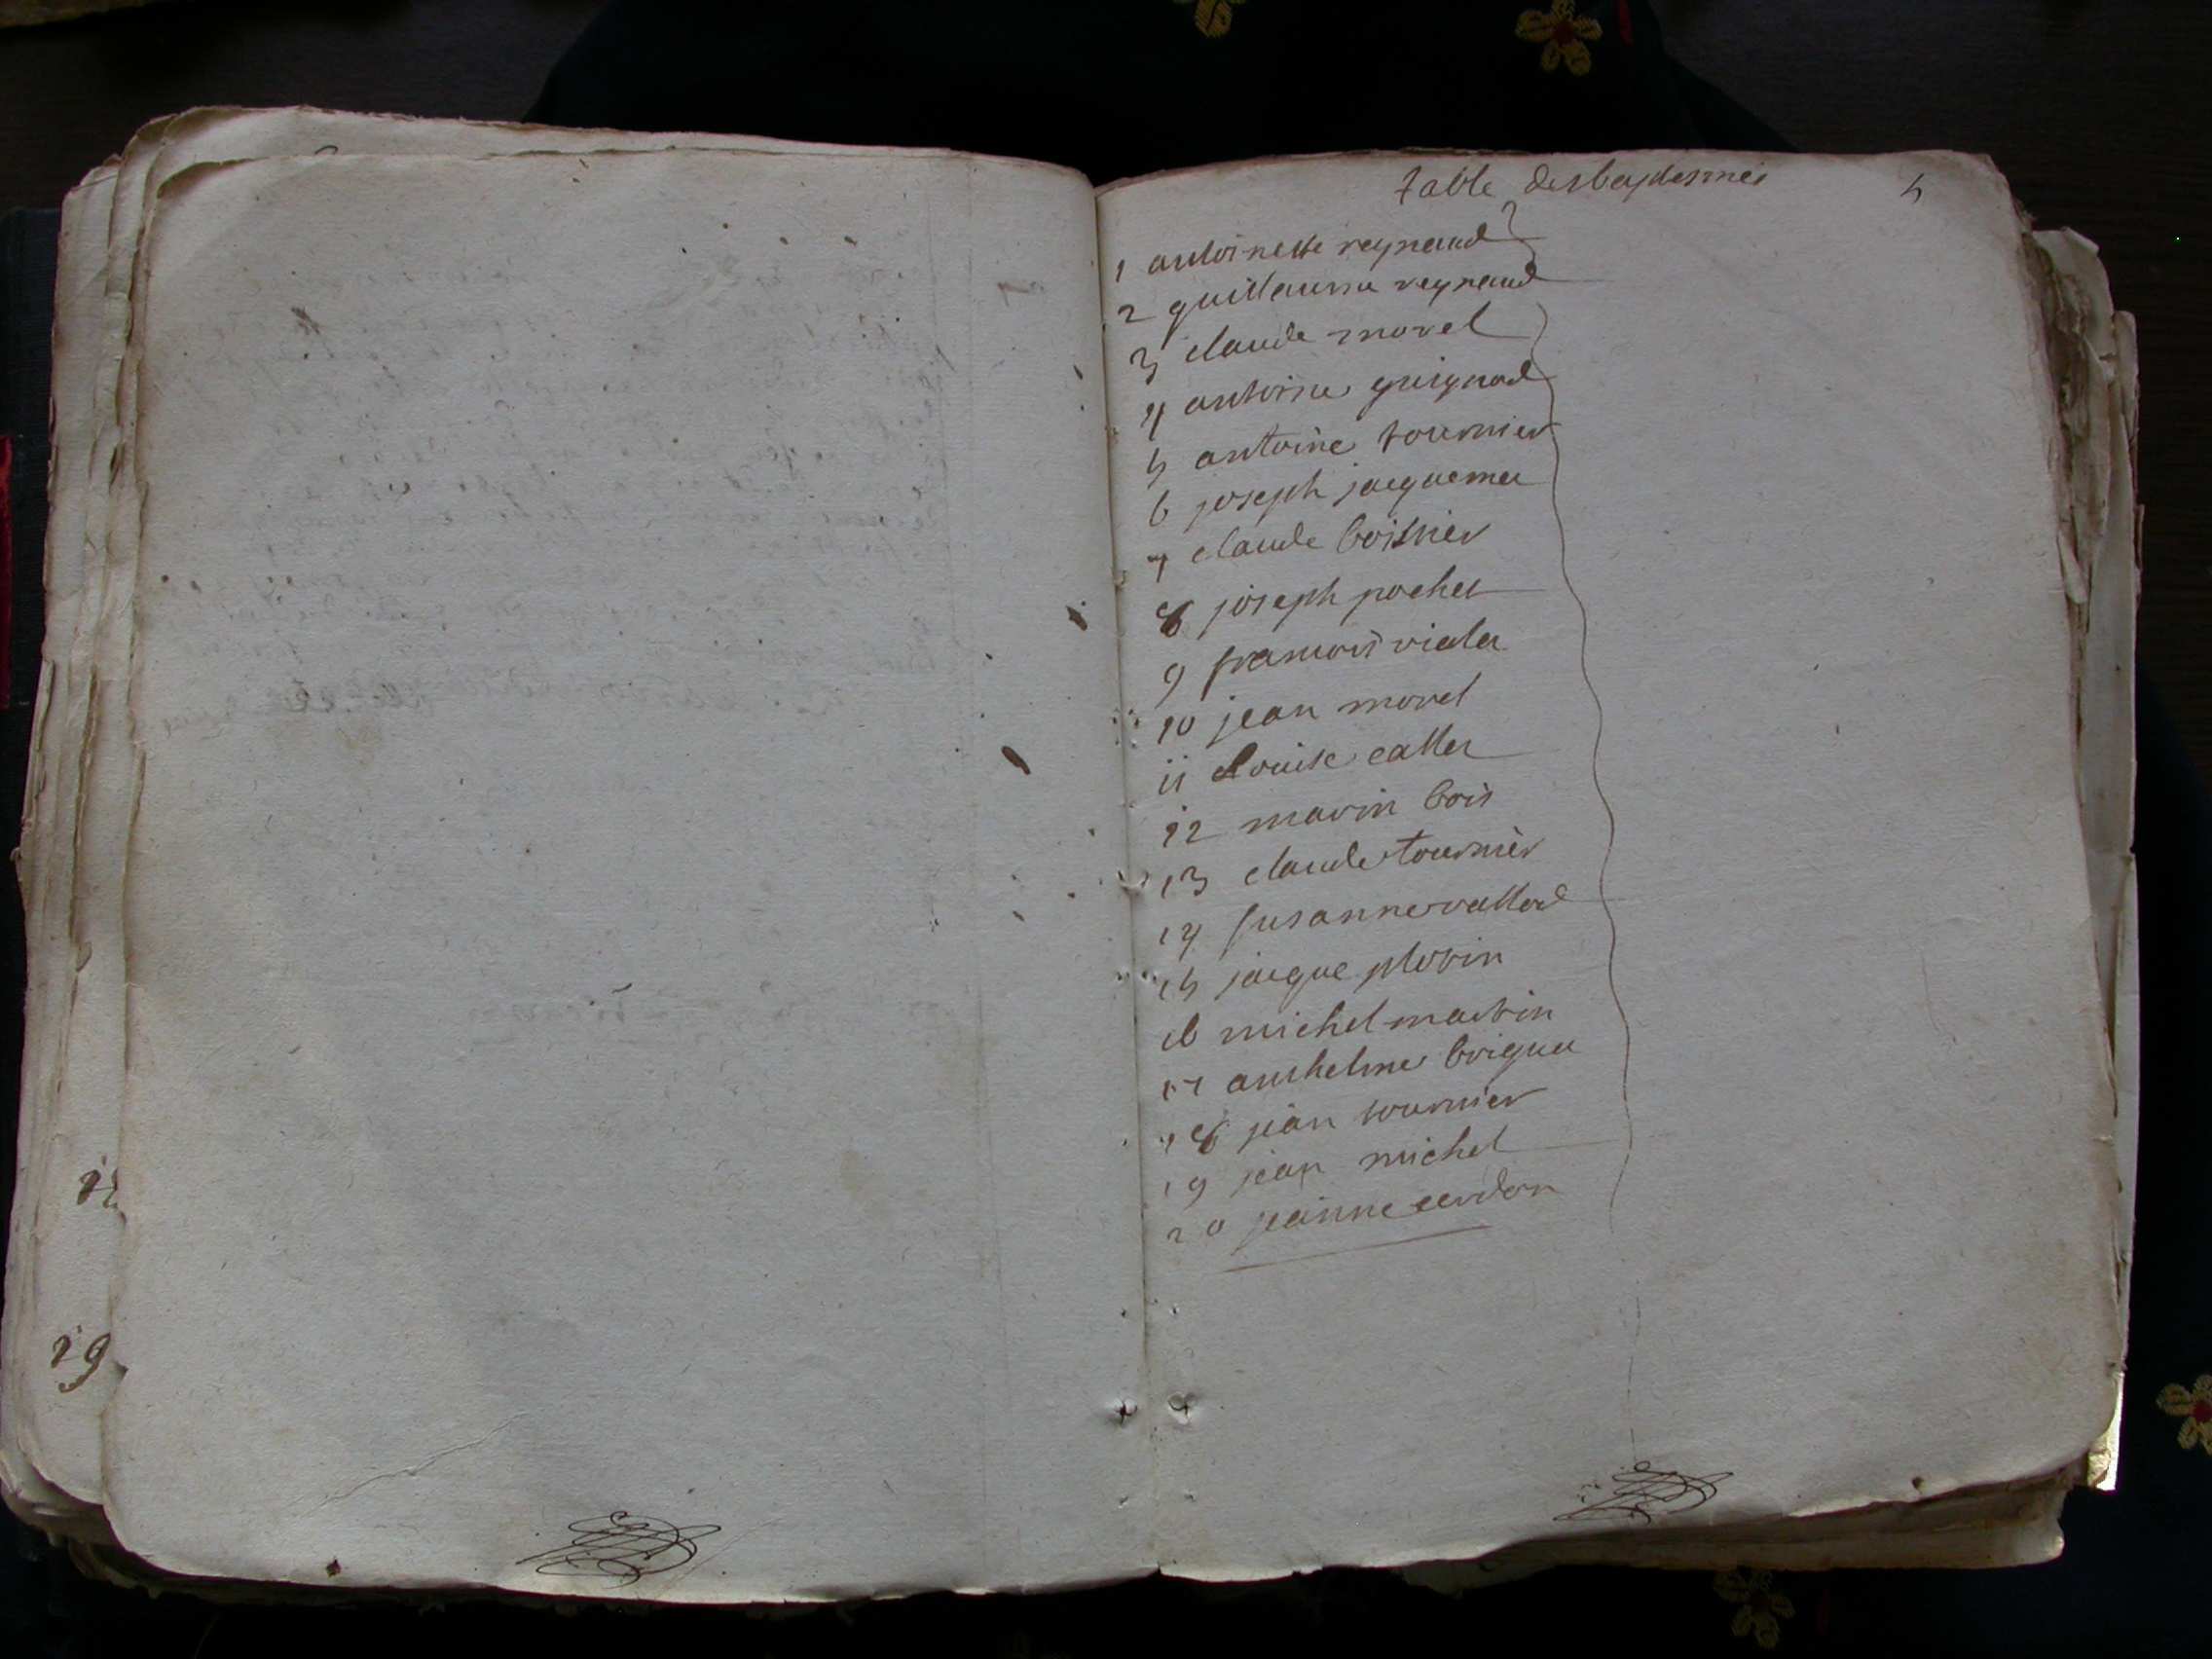 table des baptesmes 5
1 antoinette reynaud
2 guillaume reynaud
3 claude morel
4 antoine guignard
5 antoine tournier
6 joseph jacquemet
7 claude boissier
8 joseph pochet
9 francois violet
10 jean morel
11 louise callet
12 marin bois
13 claude tournier
14 susanne vallod
15 jacque
16 michel martin
17 anthelme briguet
18 jean tournier
19 jean michel
20 jeanne cerdon
19